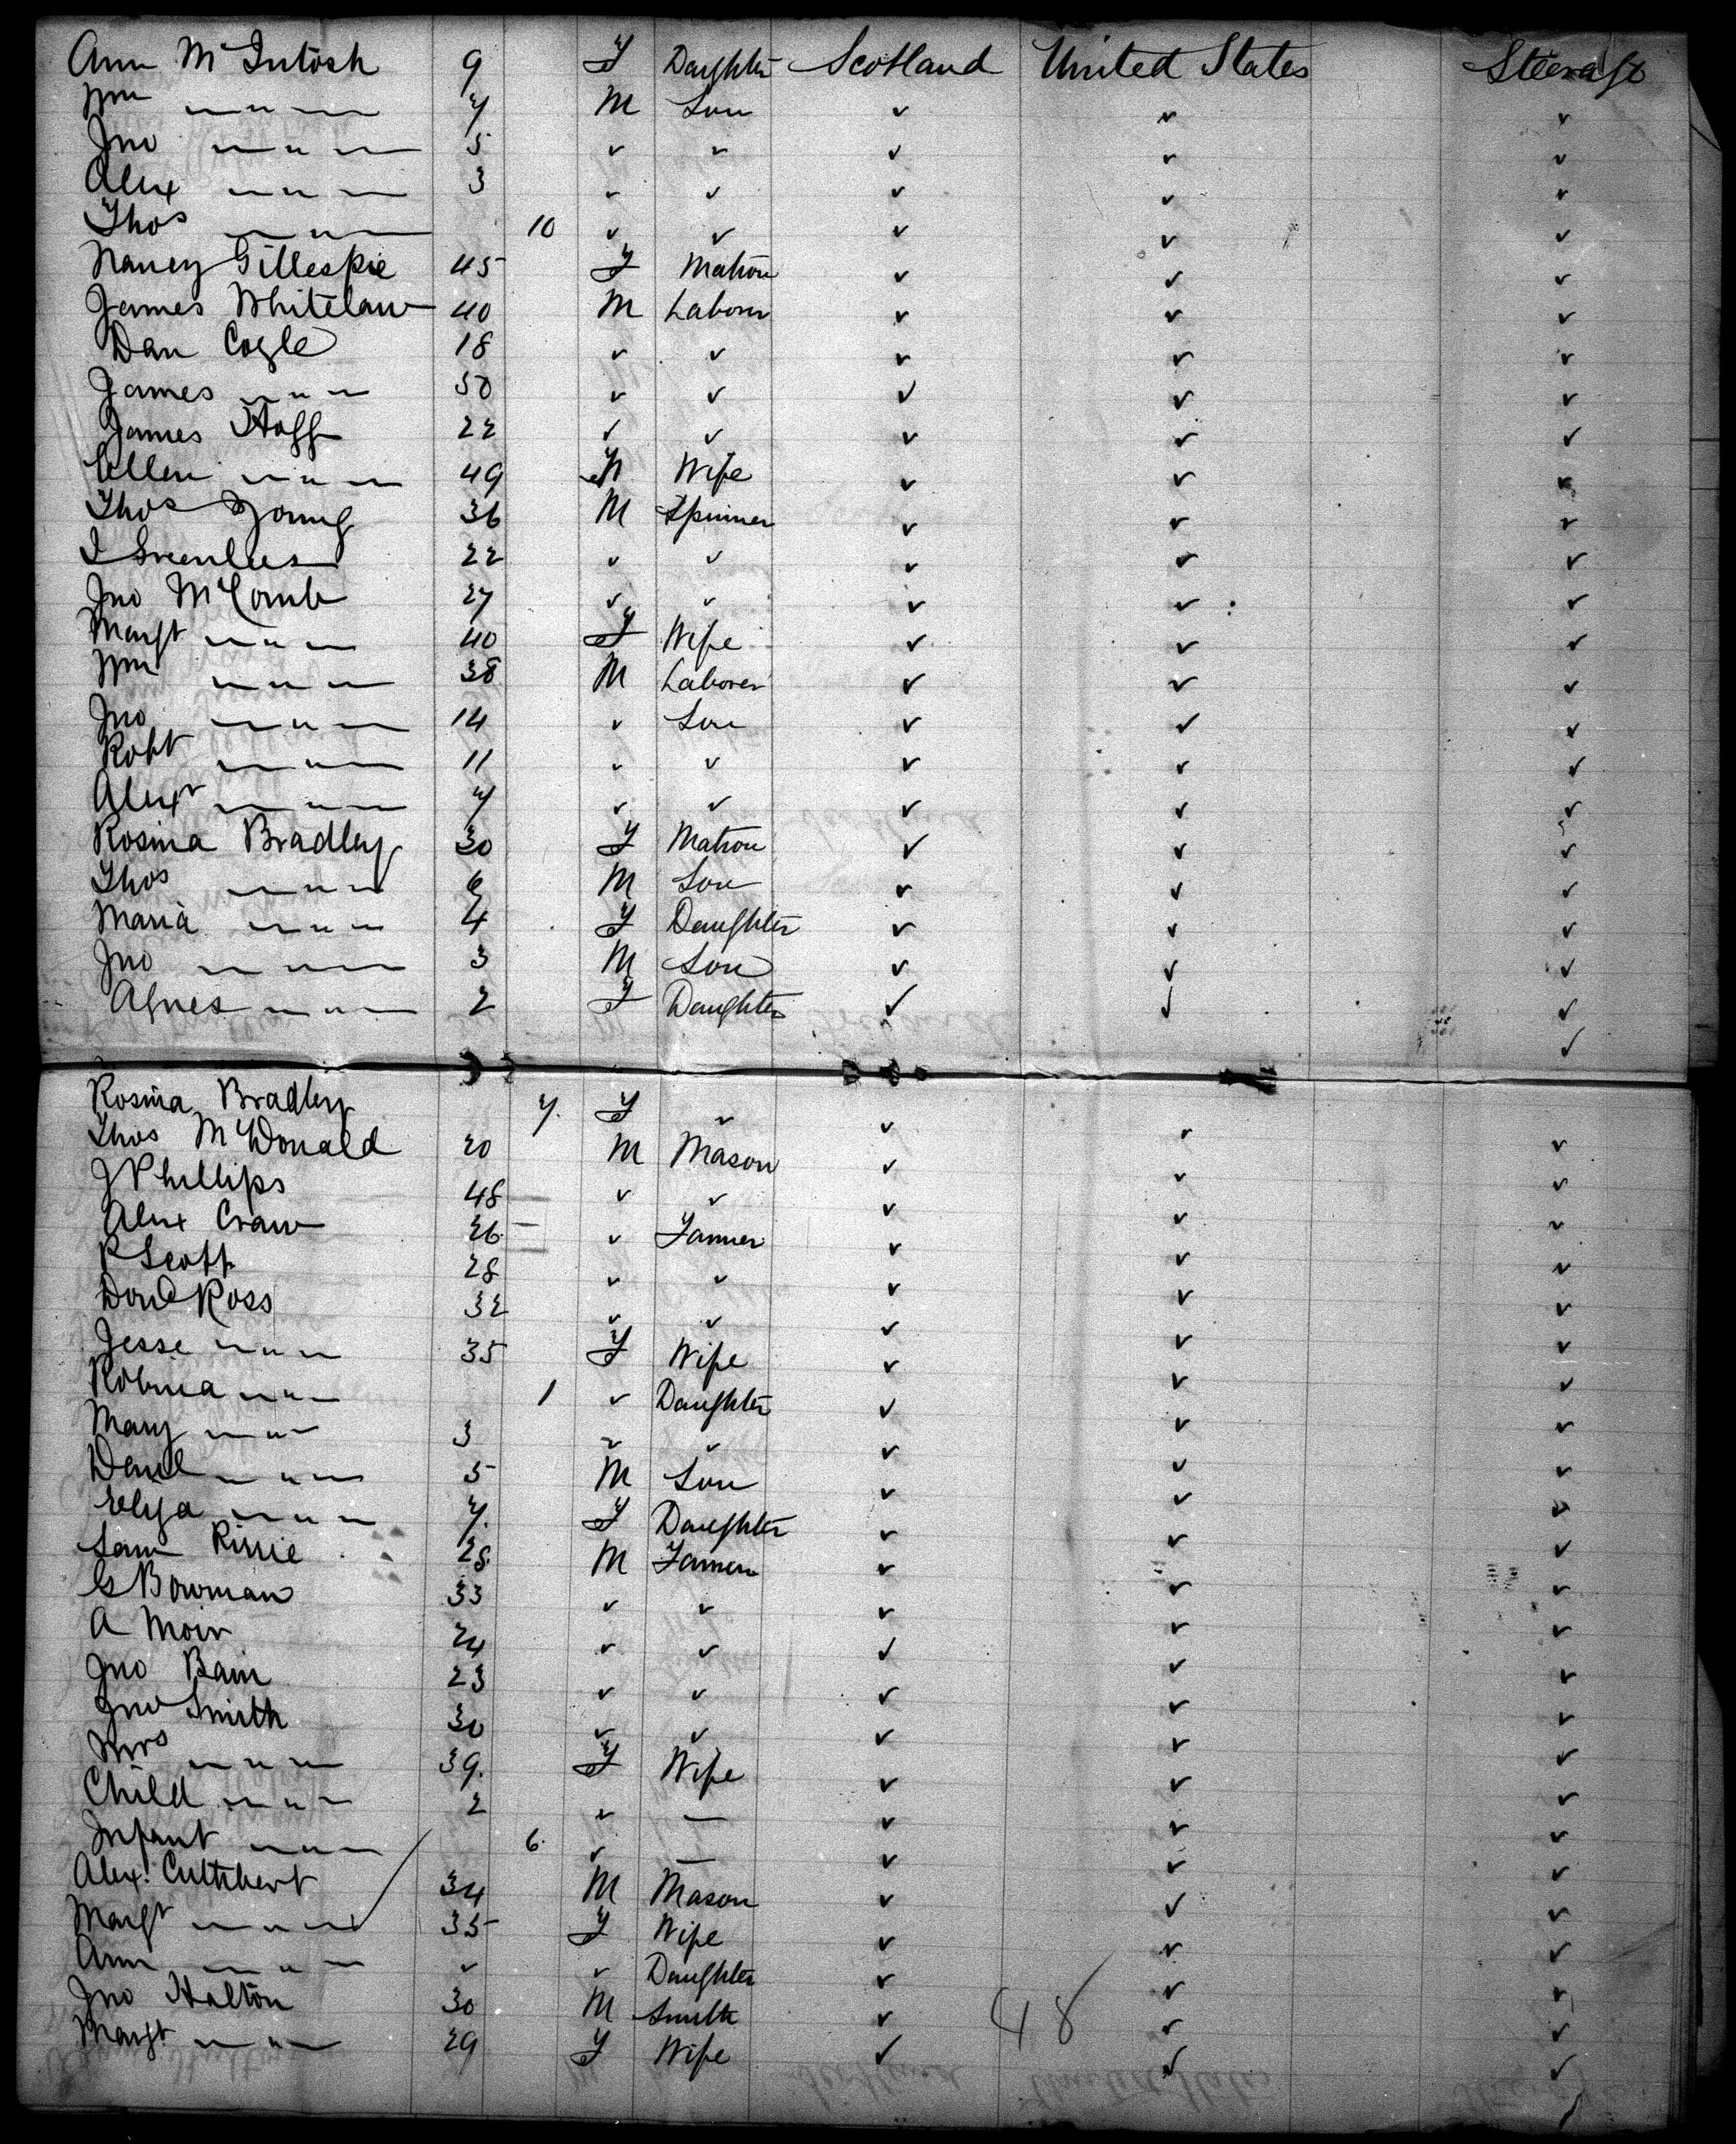 Ann McIntosh 9 F Daughter Scotland United States Steerage
Wm — " — 7 M Son ✓ ✓ ✓
Jno — " — 5 ✓ ✓ ✓ ✓ ✓
Alex — " — 3 ✓ ✓ ✓ ✓ ✓
Thos — " — 10 ✓ ✓ ✓ ✓ ✓
Nancy Gillespie 45 F Matron ✓ ✓ ✓
James Whitelaw 40 M Laborer ✓ ✓ ✓
Dan Cogle 18 ✓ ✓ ✓ ✓ ✓
James — " — 50 ✓ ✓ ✓ ✓ ✓
James 22 ✓ ✓ ✓ ✓ ✓
Ellen — " — 49 Wife ✓ ✓ ✓
Thos Young 36 M Spinner ✓ ✓ ✓
J Greenlees 22 ✓ ✓ ✓ ✓ ✓
Jno McComb 27 ✓ ✓ ✓ ✓ ✓
Margt — " — 40 F Wife ✓ ✓ ✓
Wm — " — 38 M Laborer ✓ ✓ ✓
Jno — " — 14 ✓ Son ✓ ✓ ✓
Robt — " — 11 ✓ ✓ ✓ ✓ ✓
Alexr — " — 7 ✓ ✓ ✓ ✓ ✓
Rosina Bradley 30 F Matron ✓ ✓ ✓
Thos — " — 6 M Son ✓ ✓ ✓
Maria — " — 4 F Daughter ✓ ✓ ✓
Jno — " — 3 M Son ✓ ✓ ✓
Agnes — " — 2 F Daughter ✓ ✓ ✓
Rosina Bradley 7 F ✓ ✓ ✓ ✓
Thos McDonald 20 M Mason ✓ ✓ ✓
J Phillips 48 ✓ ✓ ✓ ✓ ✓
Alex Craw 26 ✓ Farmer ✓ ✓ ✓
R Scott 28 ✓ ✓ ✓ ✓ ✓
Dond Ross 32 ✓ ✓ ✓ ✓ ✓
Jesse — " — 35 F Wife ✓ ✓ ✓
Robina — " — 1 ✓ Daughter ✓ ✓ ✓
Mary — " — 3 ✓ ✓ ✓ ✓ ✓
— " — 5 M Son ✓ ✓ ✓
Elza — " — 7 F Daughter ✓ ✓ ✓
Sam 28 M Farmer ✓ ✓ ✓
G Bowman 33 ✓ ✓ ✓ ✓ ✓
A Moir 24 ✓ ✓ ✓ ✓ ✓
Jno Bain 23 ✓ ✓ ✓ ✓ ✓
Jno Smith 30 ✓ ✓ ✓ ✓ ✓
Mrs — " — 39 F Wife ✓ ✓ ✓
Child — " — 2 ✓ — ✓ ✓ ✓
Infant — " — 6 ✓ — ✓ ✓ ✓
Alex. Cuthbert 34 M Mason ✓ ✓ ✓
Margt — " — 35 F Wife ✓ ✓ ✓
Ann — " — ✓ ✓ Daughter ✓ ✓ ✓
Jno Halton 30 M Smith ✓ 48 ✓ ✓
Margt — " — 29 F Wife ✓ ✓ ✓